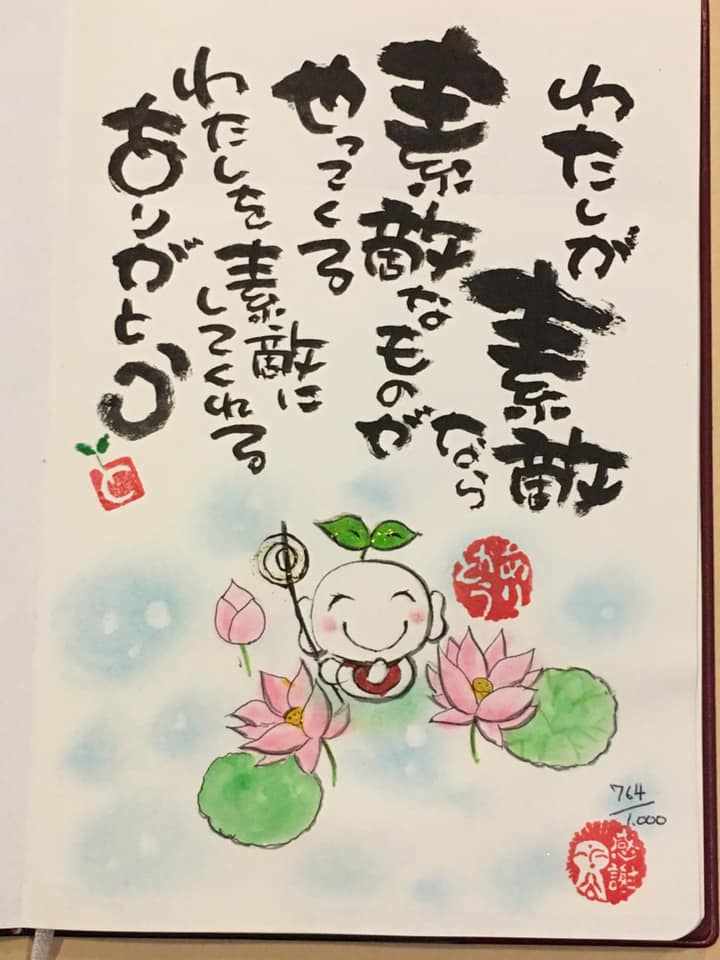 わたしが
素敵
なら
素敵なものが
やってくる
わたしを素敵に
してくれる
ありがとう
ありがとう
764/1.000
感謝